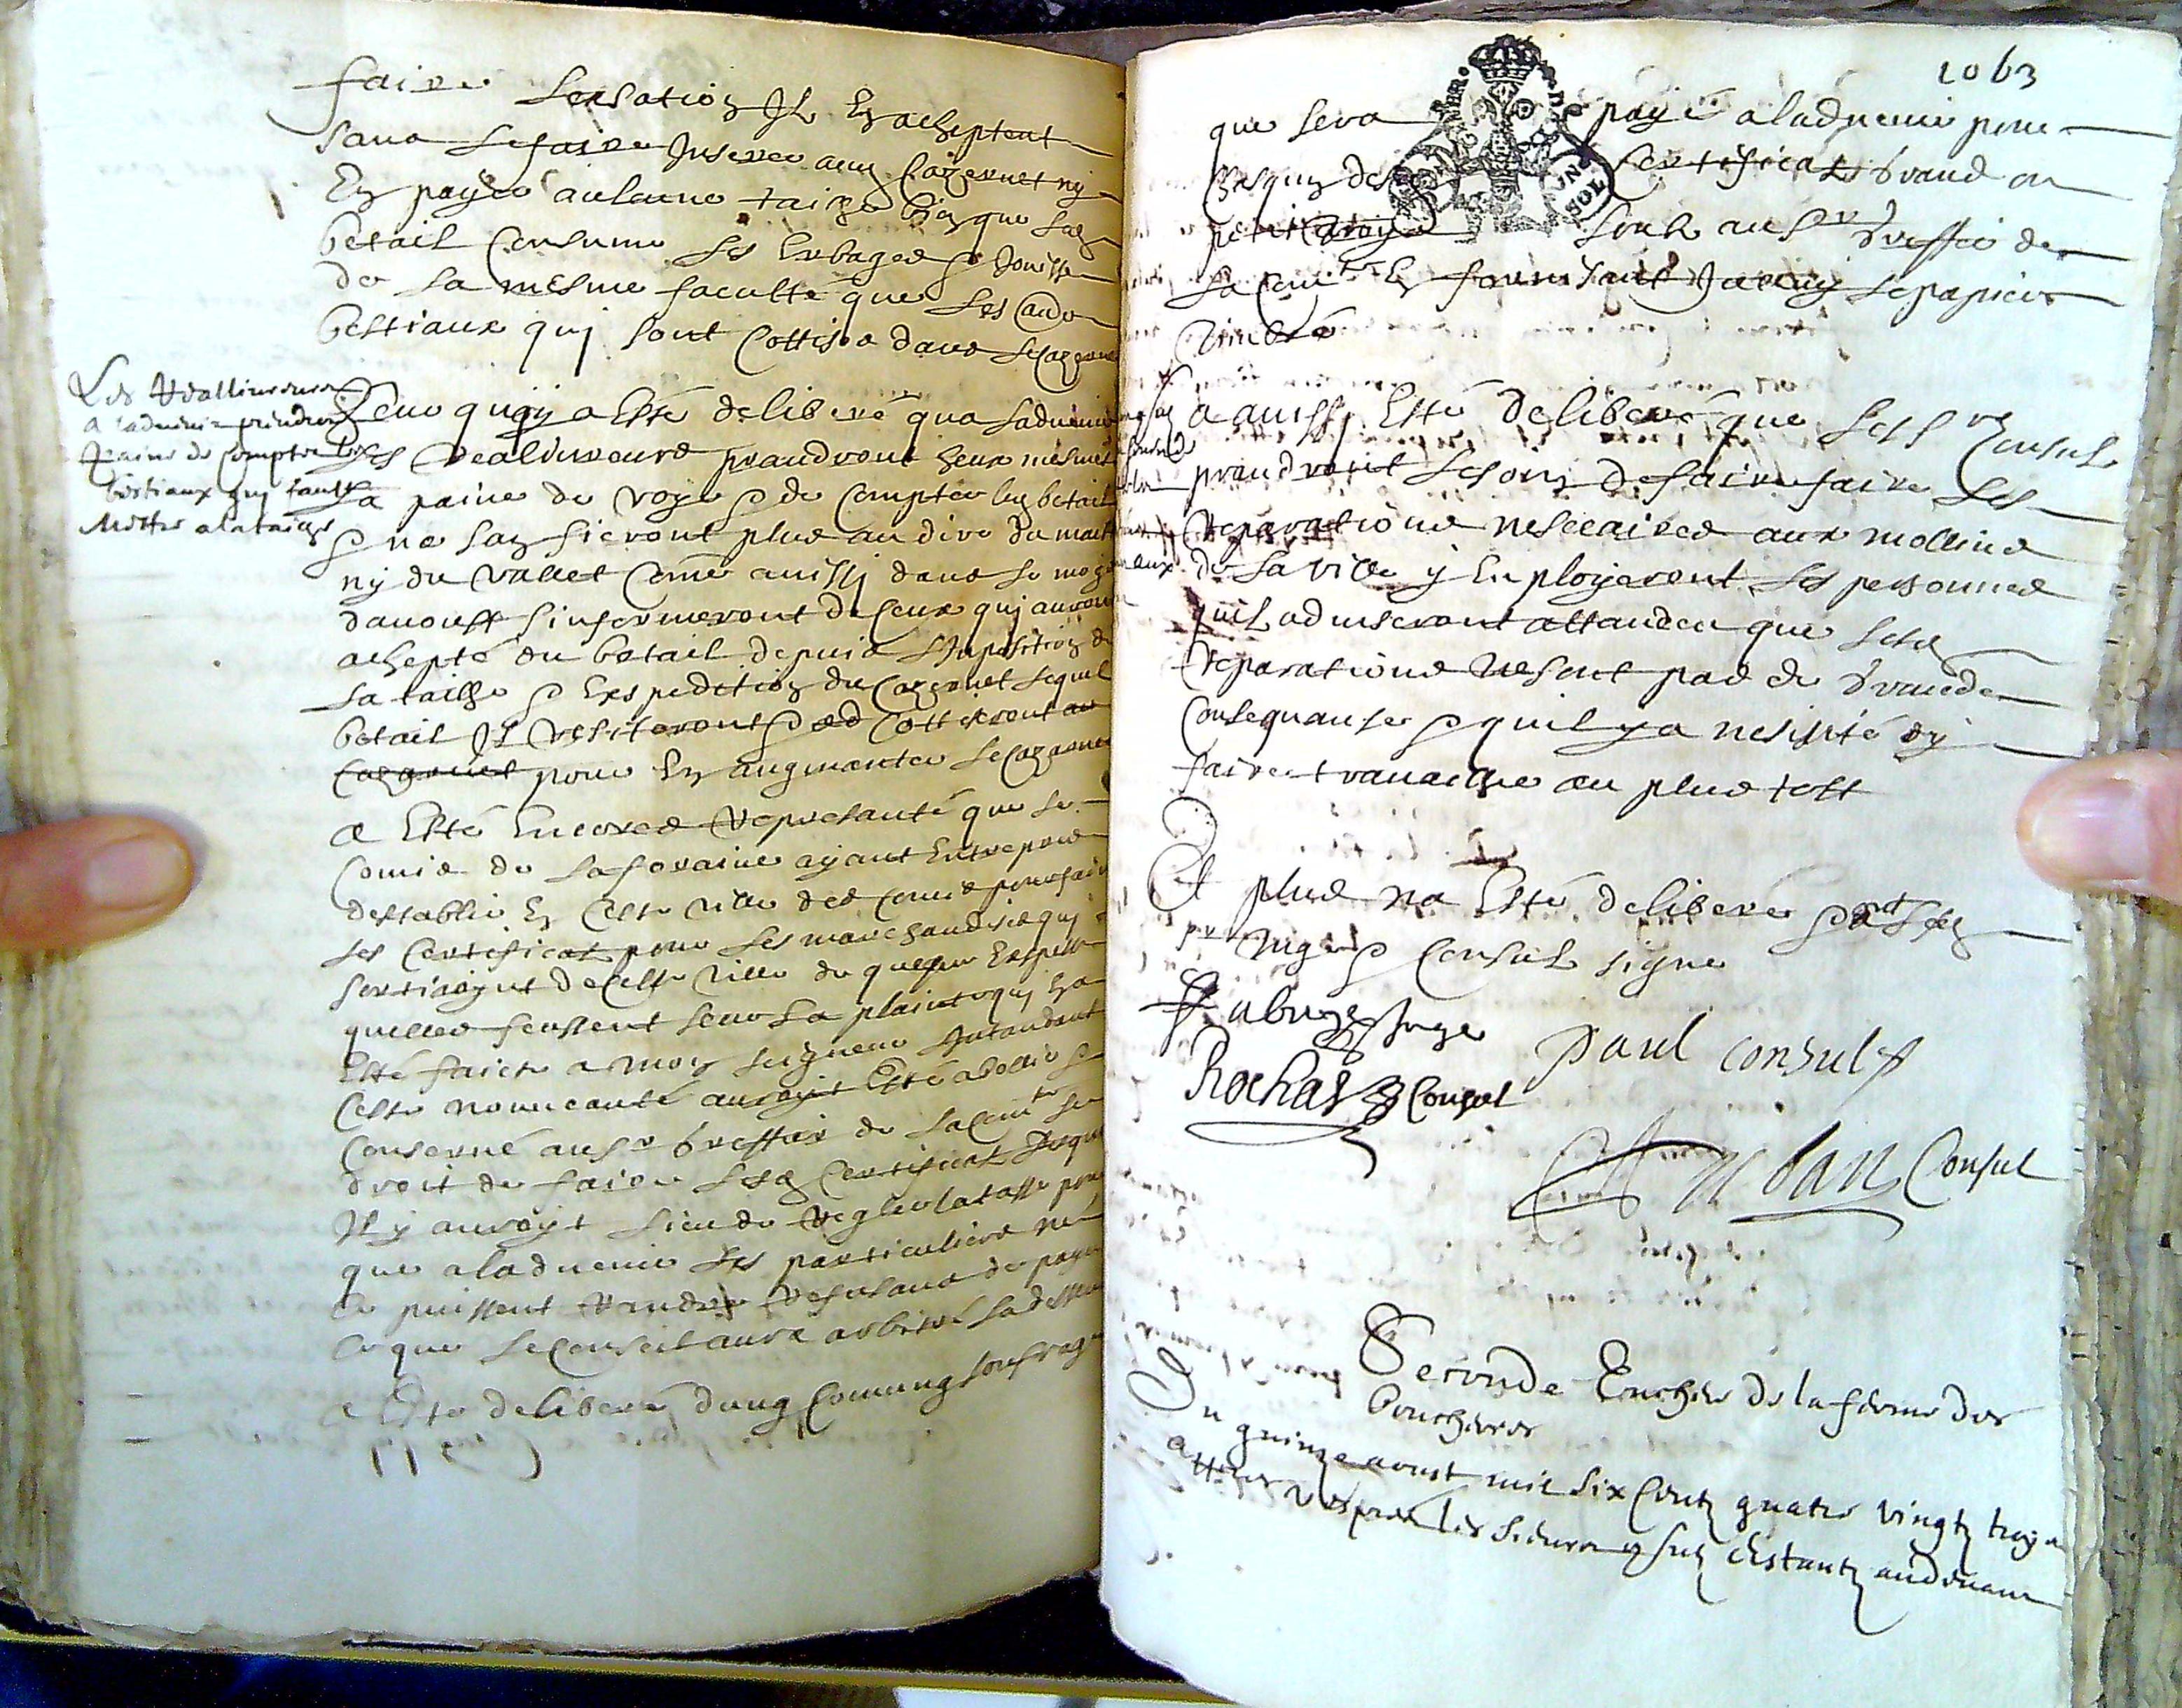 faire lexsation Il En acheptent
sans le faire Inserer au Cazernet ny
En payer aulcune taize bien que led
betail Consume les herbages & Jouisse
de la mesme faculté que les autres
bestiaux qui sont Cottisés dans le Cazernet
Les Realliureurs
a ladvenir prindront
paine de compter les
bestiaux quy faut
Mettre a la taizes
Deuo quoy a Esté deliberé qua ladvenir
les realiureurs prandront heux mesmes
la paine de voyr & de Compter led betail
& ne san fieront plus au dire du maitre
ny du vallet Come aussy dans le moys
daoust sinformeront de Ceux quj auront
achepté du betail depuis Linposition de
la taillie & Expedition du Cazernet lequel
betail Il visiteront & Cottiseront au
Cazernet pour En augmanter le Cazernet
a Esté Encores Represanté que le
Comis de la foraine ayant Entrepris
destablir En Ceste ville des Comis pour faire
les Certificat pour les marchandises quj
sortiroynt de Ceste ville de quelque Espesse
quelles feussent sur la plainte quj En a
Esté faicte a Monseigneur Intandant
Ceste nouueauté auroyt Esté abollie &
Conservé au sr Greffier de la Comte le
droit de faire lesd Certificat Jusque
Il y auroyt lieu de Regler la tasse pour
que a ladvenir les particuliers ne
se puissent randre Refusans de payer
ce que le Conseil aura arbitré la dessus
a Esté deliberé dung Comung soufrage
1063
que sera payé a ladvenir pour
Chesqun des Certificats Grand ou
petit soubs au sr Greffier de
la Comte En fournisant le papier
timbré
a aussy Esté deliberé que les srs Consuls
prandront le soin de faire faire les
reparations nesecaires aux mollins
de la ville y Enployeront les personnes
quil adviseront attandeu que lesd
reparations ne sont pas de Grande
Consequanse & quil y a nesisité dy
faire travailler au plus tost
Et plus na Esté deliberé & ont lesd
srs Juge & Consuls signé
Juge
Paul consul
Rochas Consul
Consul
Seconde Enchere de la ferme des
Boucheries
Du quinze aoust mil six Centz quatre vingtz troys
attres vespres les sieurs Consulz Estantz audevant